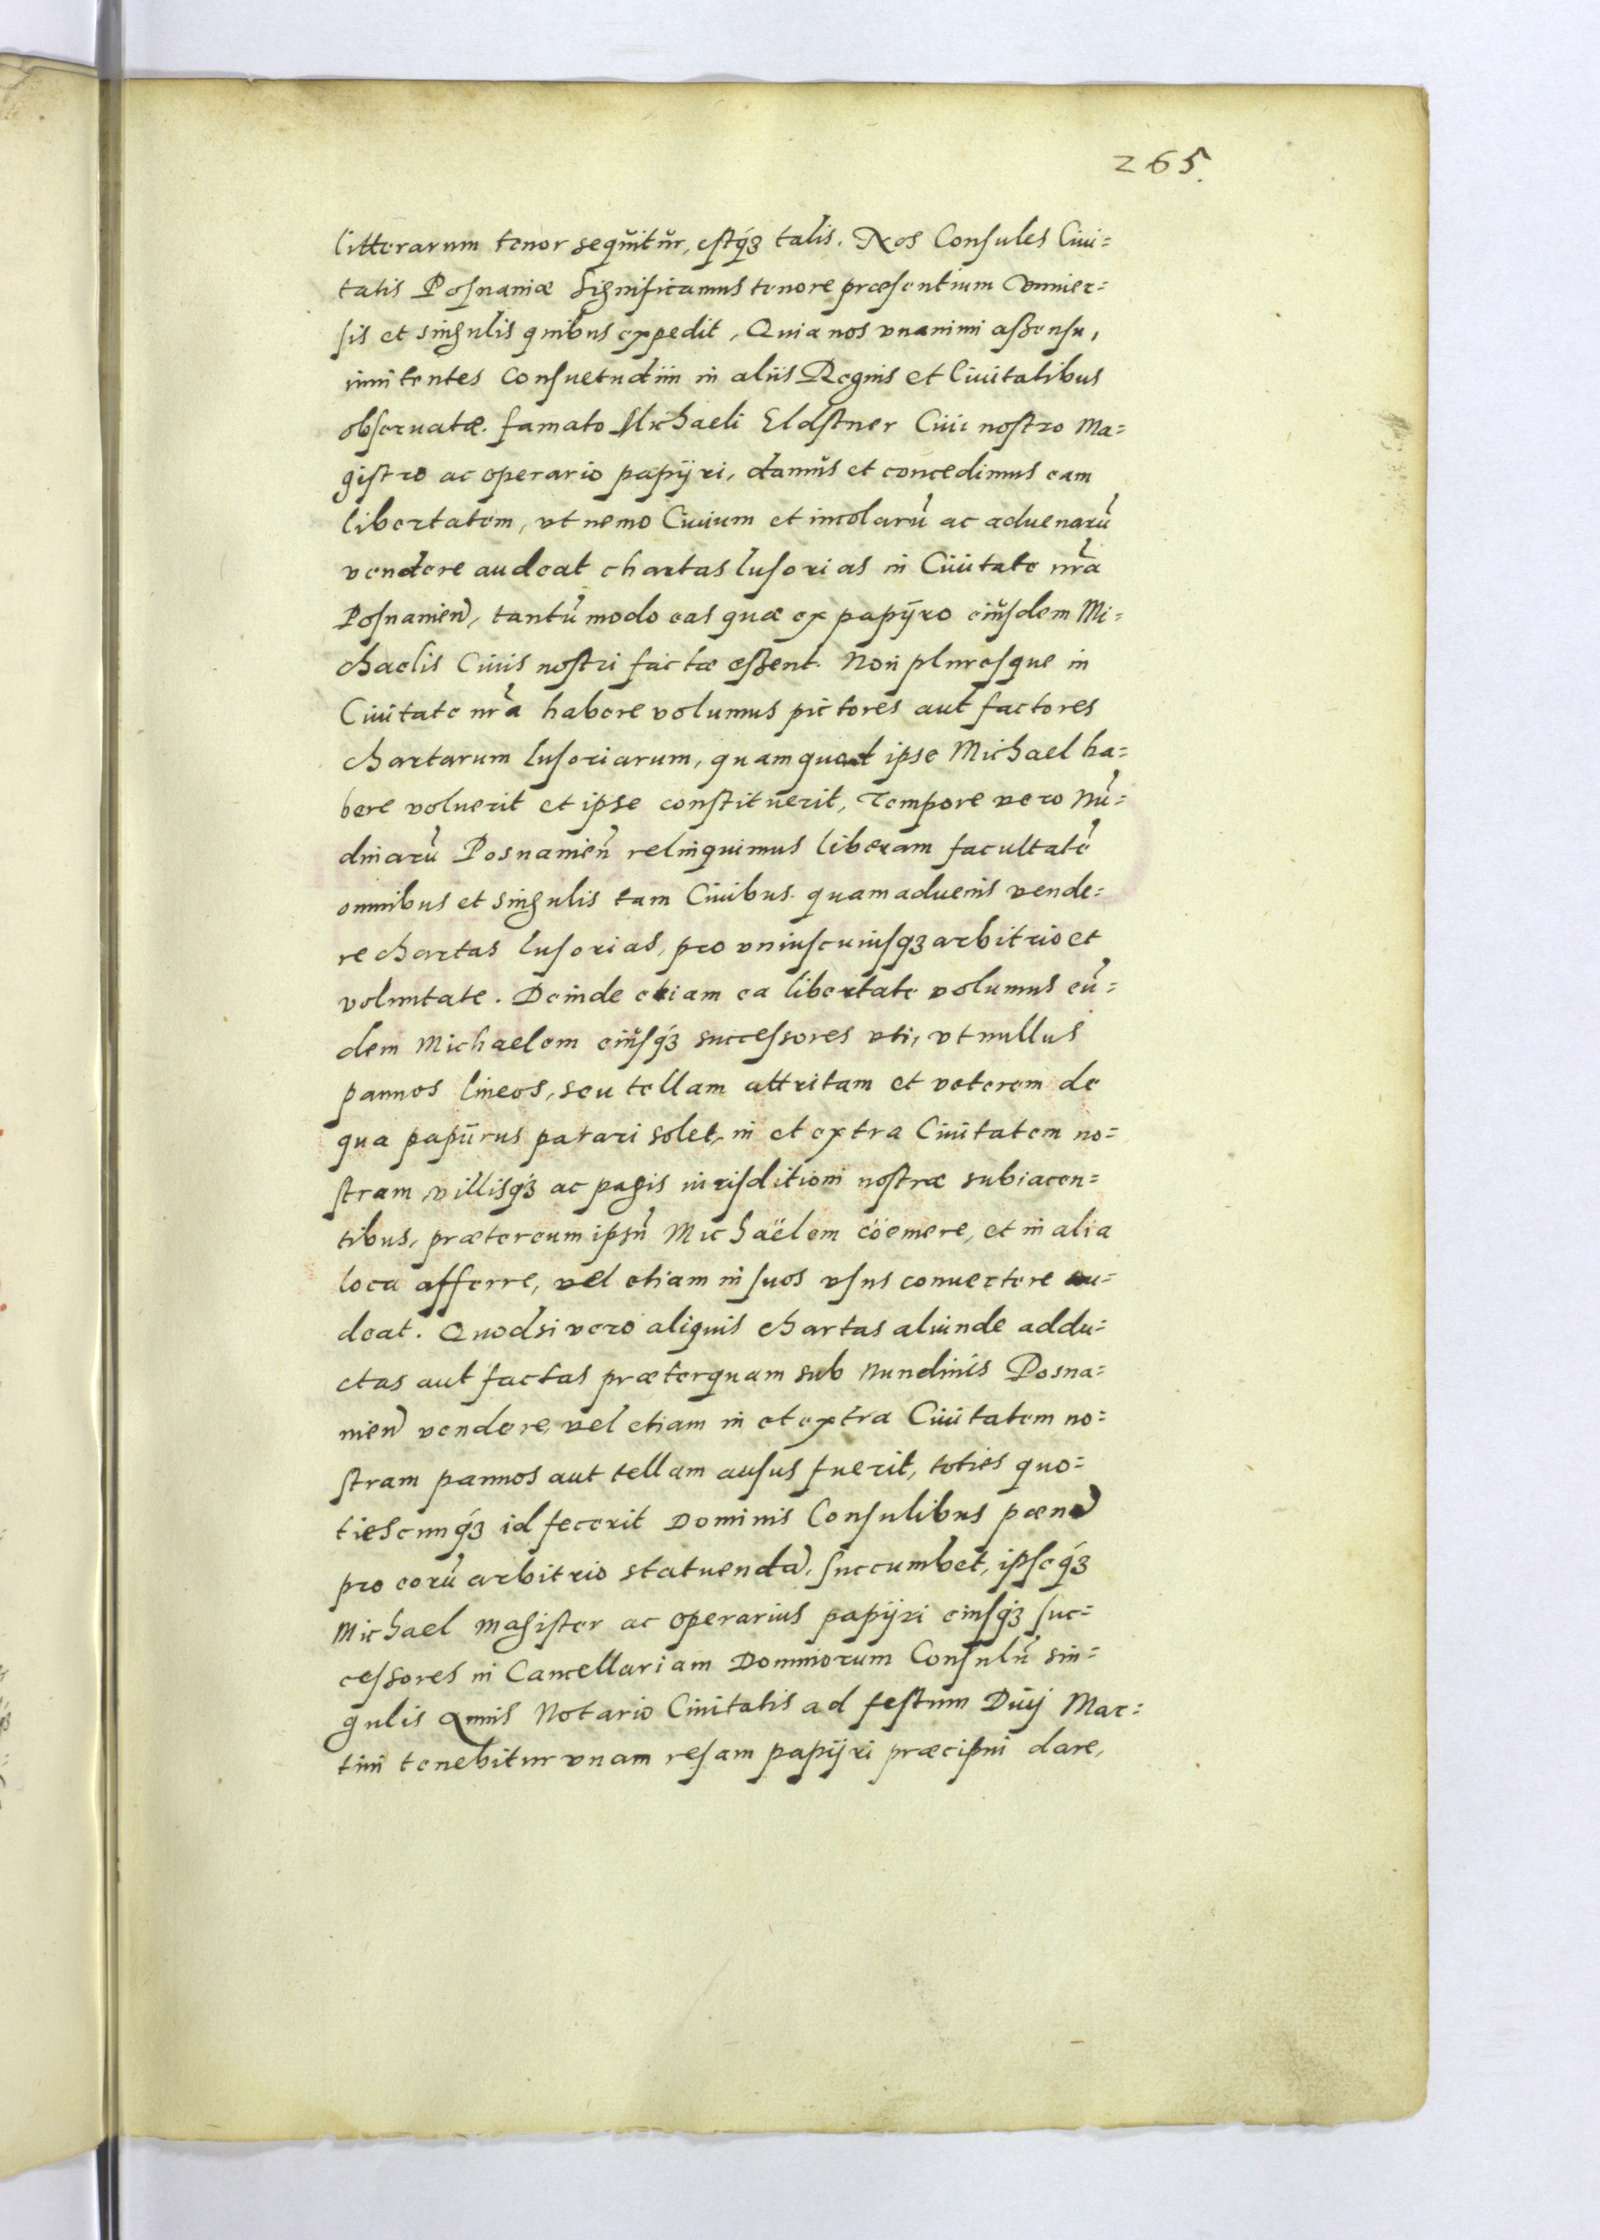 265.
litterarum tenor sequitur, estq́ꝫ talis. Nos Consules Ciui=
tatis Posnaniæ Significamus tenore præsentium Vniuer=
sis et singulis quibus expedit, Quia nos vnanimi assensu,
innitentes Consuetudini in aliis Regnis et Ciuitatibus
obseruatæ. famato Michaeli Eldstner Ciui nostro Ma=
gistro ac operario papÿri, damus et concedimus eam
libertatem, vt nemo Ciuium et incolarū ac aduenarū
vendere audeat chartas lusorias in Ciuitate nr̃a
Posnanien̄, tantū modo eas quæ ex papÿro eiusdem Mi=
chaelis Ciuis nostri factæ essent. Non pluresque in
Ciuitate nr̃a habere volumus pictores aut factores
chartarum lusoriarum, quam quod ipse Michael ha=
bere voluerit et ipse constituerit, Tempore vero Nū=
dinarū Posnanien̄ relinquimus liberam facultatē
omnibus et singulis tam Ciuibus. quam aduenis vende=
re chartas lusorias, pro vniuscuiusqꝫ arbitrio et
voluntate. Deinde etiam ea libertate volumus eū=
dem Michaelem eiusq́ꝫ successores vti, vt nullus
pannos lineos, seu tellam attritam et veterem de
qua papÿrus parari solet, in et extra Ciuitatem no=
stram villisq́ꝫ ac pagis iurisditioni nostræ subiacen=
tibus, præter eum ipsū Michaëlem cöemere, et in alia
loca afferre, vel etiam in suos vsus conuertere au=
deat. Quodsi vero aliquis chartas aliunde addu=
ctas aut factas præterquam sub Nundinis Posna=
nien̄ vendere, vel etiam in et extra Ciuitatem no=
stram pannos aut tellam ausus fuerit, toties quo=
tiescunq́ꝫ id fecerit Dominis Consulibus pœnā
pro eorū arbitrio statuendā, succumbet, ipseq́ꝫ
Michael Magister ac operarius papÿri eiusq́ꝫ suc=
cessores in Cancellariam Dominorum Consulū sin=
gulis Annis Notario Ciuitatis ad festum Diuj Mar=
tini tenebitur vnam resam papÿri præcipui dare,